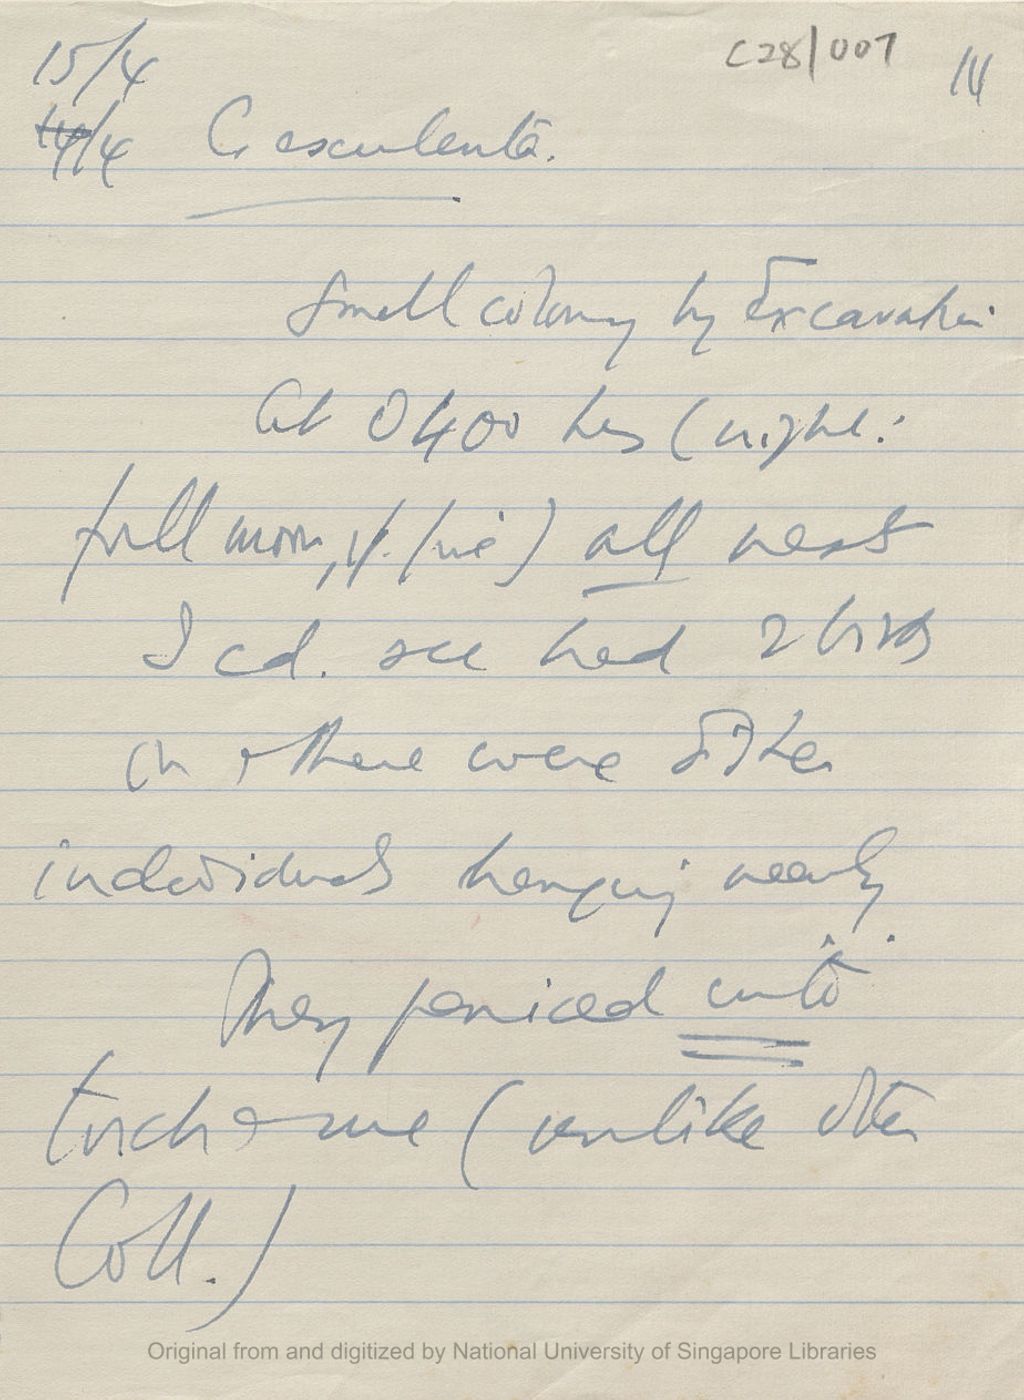 C28/007 14
15/4
14/4 C. esculenta.
Small colony by Excavation
At 0400 hrs (night:
full moon, v. fine) all nests
I cd. see had 2 birds
on & there were other
individuals hanging nearby.
They paniced with
torch & me (unlike other
Coll.)
Original from and digitized by National University of Singapore Libraries